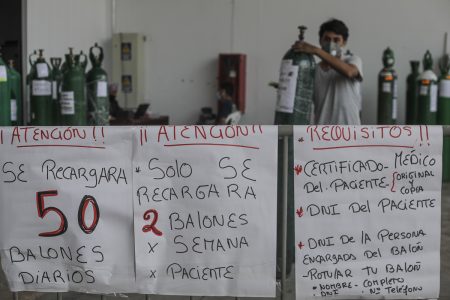 ¡¡ATENCIÓN!!
SE RECARGARA
50
BALONES
DIARIOS
¡¡ATENCIÓN!!
* SOLO SE
RECARGARA
2 BALONES
x SEMANA
x PACIENTE
REQUISITOS!!
* CERTIFICADO MÉDICO
DEL PACIENTE ORIGINAL Y COPIA
* DNI DEL PACIENTE
* DNI DE LA PERSONA
ENCARGADA DEL BALÓN
- ROTULAR TU BALÓN
* NOMBRE - COMPLETO
DNI Nº TELEFONO